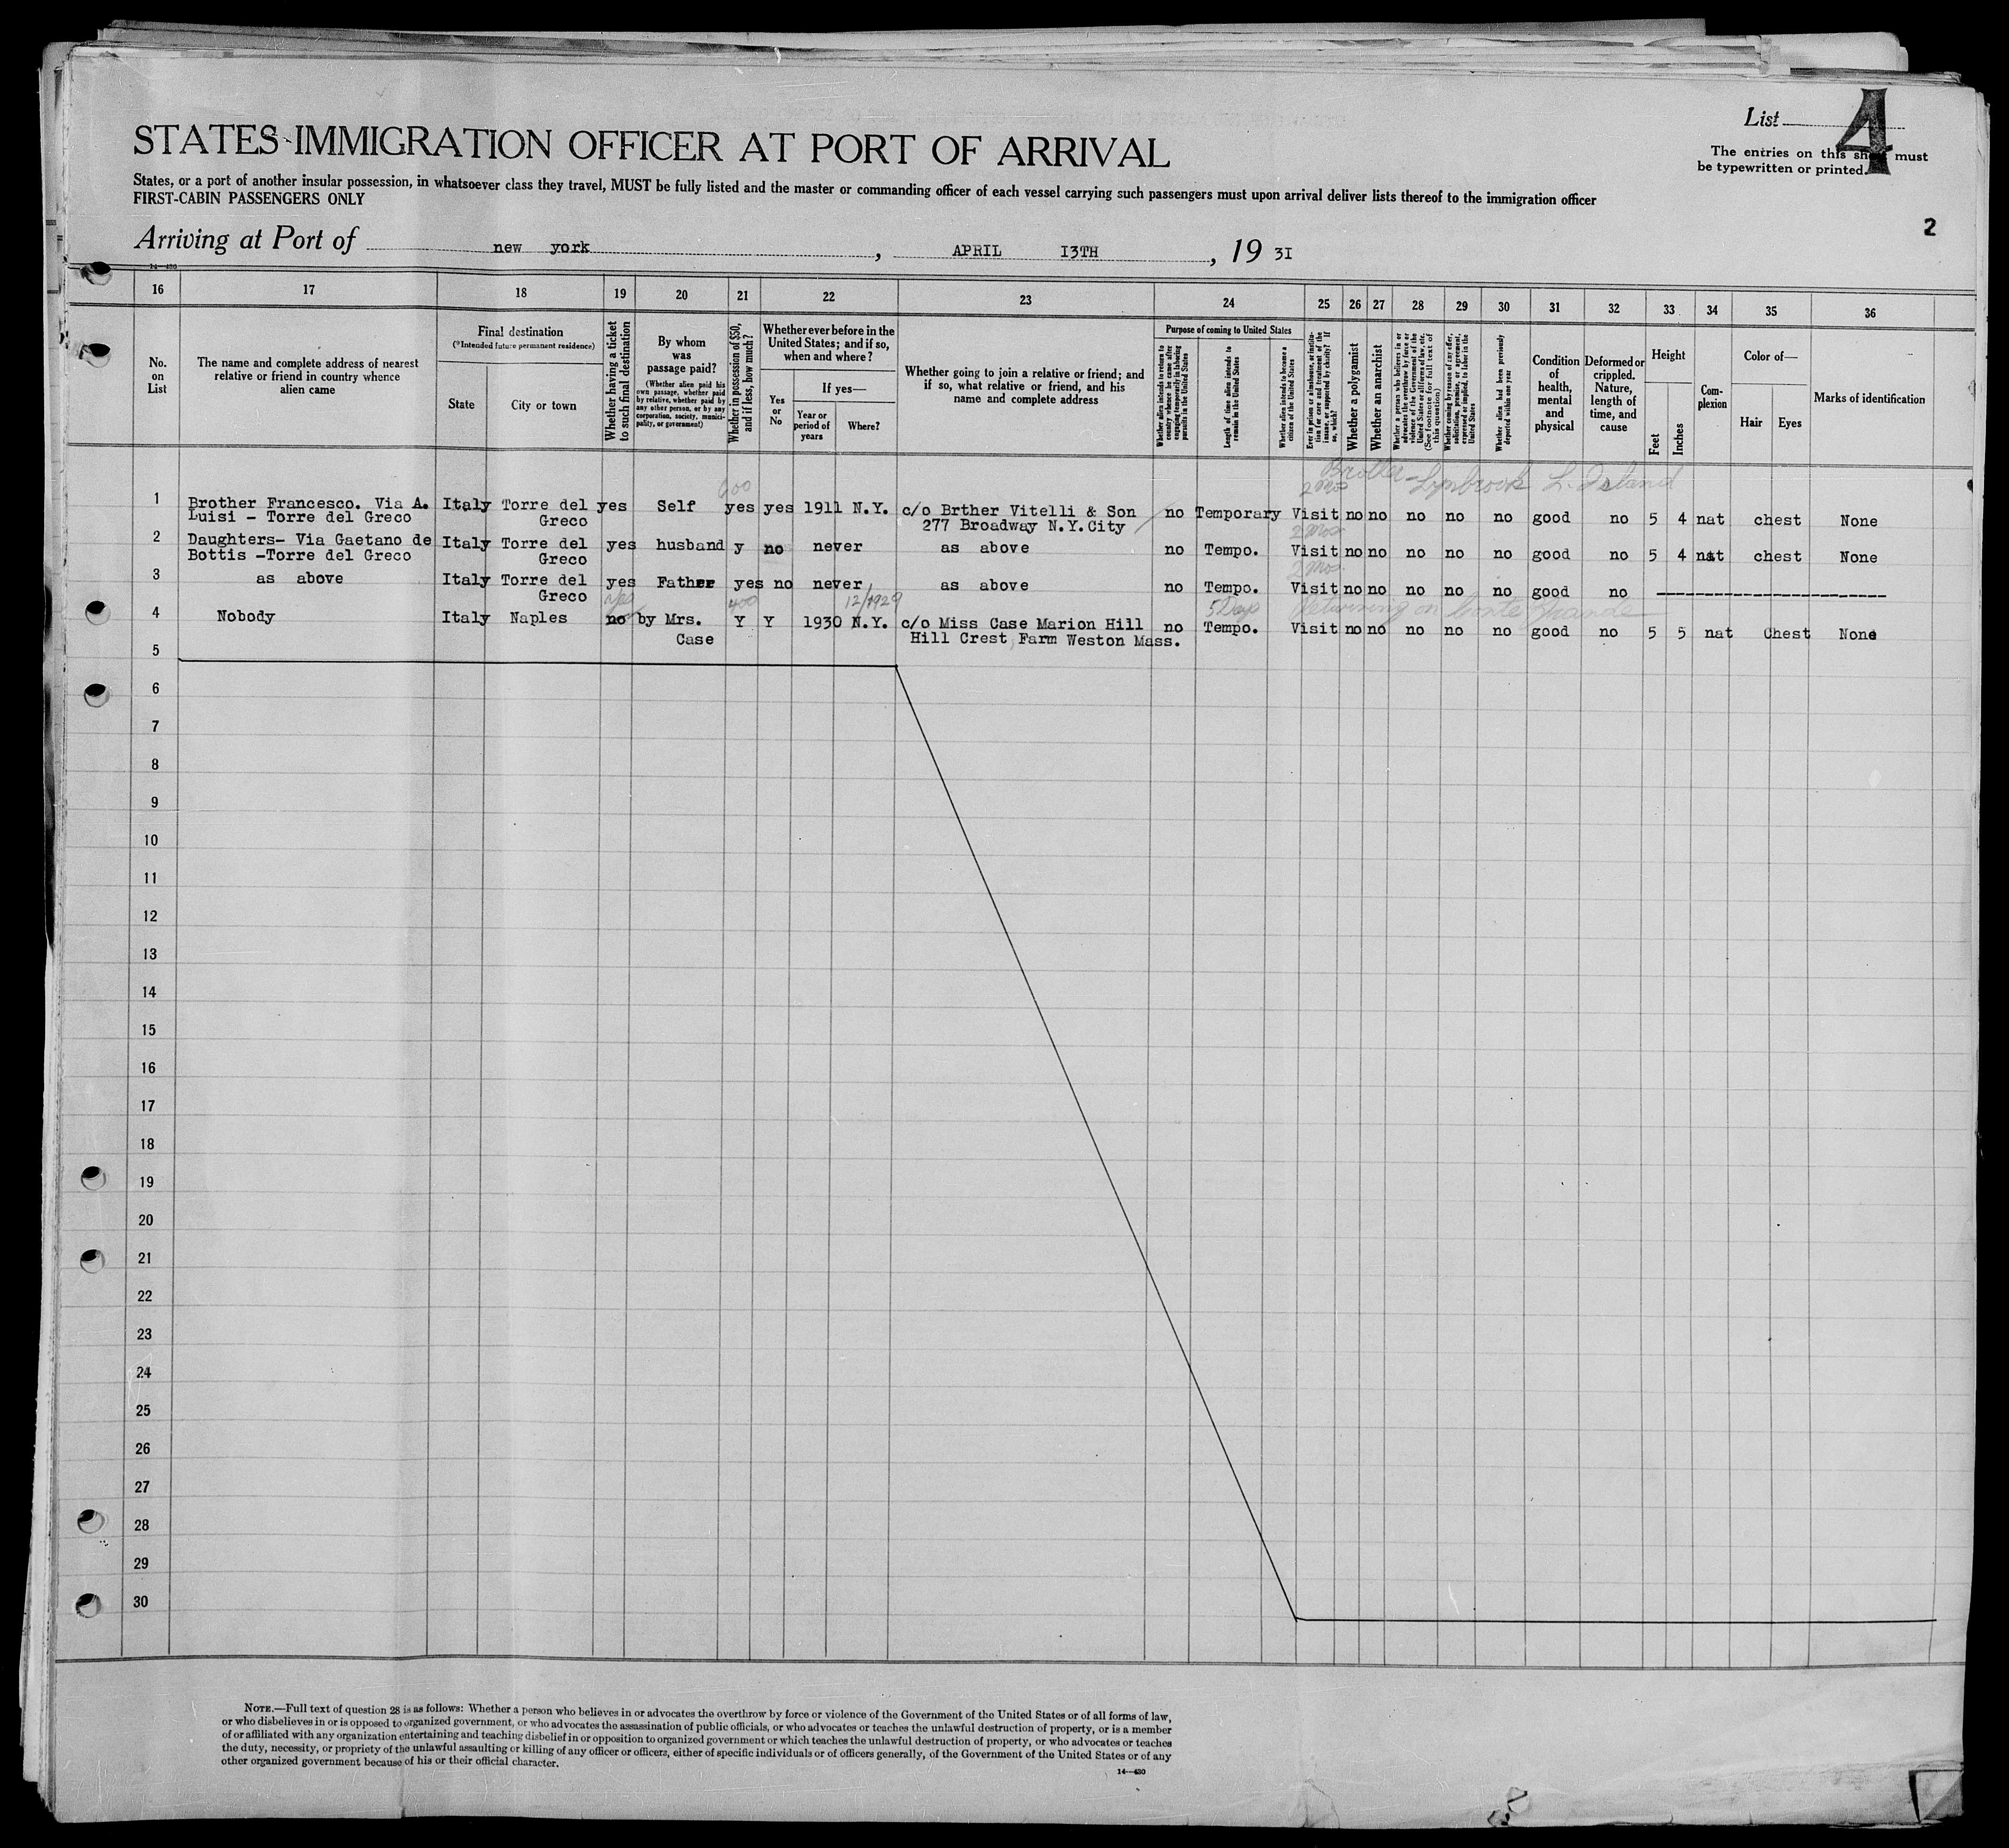 List 4
STATES IMMIGRATION OFFICER AT PORT OF ARRIVAL
The entries on this sheet must
be typewritten or printed.
States, or a port of another insular possession, in whatsoever class they travel, MUST be fully listed and the master or commanding officer of each vessel carrying such passengers must upon arrival deliver lists thereof to the immigration officer
FIRST-CABIN PASSENGERS ONLY
2
Arriving at Port of new york, APRIL 13TH, 19 31
14-430
16 17 18 19 20 21 22 23 24 25 26 27 28 29 30 31 32 33 34 35 36
No. on List
The name and complete address of nearest relative or friend in country whence alien came
Final destination
(*Intended future permanent residence)
State
City or town
Whether having a ticket to such final destination
By whom was passage paid?
(Whether alien paid his own passage, whether paid by relative, whether paid by any other person, or by any corporation, society, municipality, or government)
Whether in possession of $50, and if less, how much?
Whether ever before in the United States; and if so, when and where?
Yes or No
If yes—
Year or period of years
Where?
Whether going to join a relative or friend; and if so, what relative or friend, and his name and complete address
Purpose of coming to United States
Whether alien intends to return to country whence he came after engaging temporarily in laboring pursuits in the United States
Length of time alien intends to remain in the United States
Whether alien intends to become a citizen of the United States
Ever in prison or almshouse, or institution for care and treatment of the insane, or supported by charity? If so, which?
Whether a polygamist
Whether an anarchist
Whether a person who believes in or advocates the overthrow by force or violence of the Government of the United States or all forms of law, etc. (See footnote for full text of this question)
Whether coming by reason of any offer, solicitation, promise, or agreement, expressed or implied, to labor in the United States
Whether alien had been previously deported within one year
Condition of health, mental and physical
Deformed or crippled. Nature, length of time, and cause
Height
Feet
Inches
Complexion
Color of—
Hair
Eyes
Marks of identification
Brother Lynbrook L. Island
600 2 mos
1 Brother Francesco. Via A. Italy Torre del yes Self yes yes 1911 N.Y. c/o Brther Vitelli & Son no Temporary Visit no no no no no good no 5 4 nat chest None
Luisi - Torre del Greco Greco 277 Broadway N.Y.City
2 mos
2 Daughters- Via Gaetano de Italy Torre del yes husband y no never as above no Tempo. Visit no no no no no good no 5 4 nat chest None
Bottis -Torre del Greco Greco
2 mos.
3 as above Italy Torre del yes Father yes no never as above no Tempo. Visit no no no no no good no ----------
Greco
yes 400 12/1929 5 Days Returning on Conte Grande
4 Nobody Italy Naples no by Mrs. Y Y 1930 N.Y. c/o Miss Case Marion Hill no Tempo. Visit no no no no no good no 5 5 nat Chest None
Case Hill Crest Farm Weston Mass.
5
6
7
8
9
10
11
12
13
14
15
16
17
18
19
20
21
22
23
24
25
26
27
28
29
30
NOTE.—Full text of question 28 is as follows: Whether a person who believes in or advocates the overthrow by force or violence of the Government of the United States or of all forms of law,
or who disbelieves in or is opposed to organized government, or who advocates the assassination of public officials, or who advocates or teaches the unlawful destruction of property, or is a member
of or affiliated with any organization entertaining and teaching disbelief in or opposition to organized government or which teaches the unlawful destruction of property, or who advocates or teaches
the duty, necessity, or propriety of the unlawful assaulting or killing of any officer or officers, either of specific individuals or of officers generally, of the Government of the United States or of any
other organized government because of his or their official character.
14—430